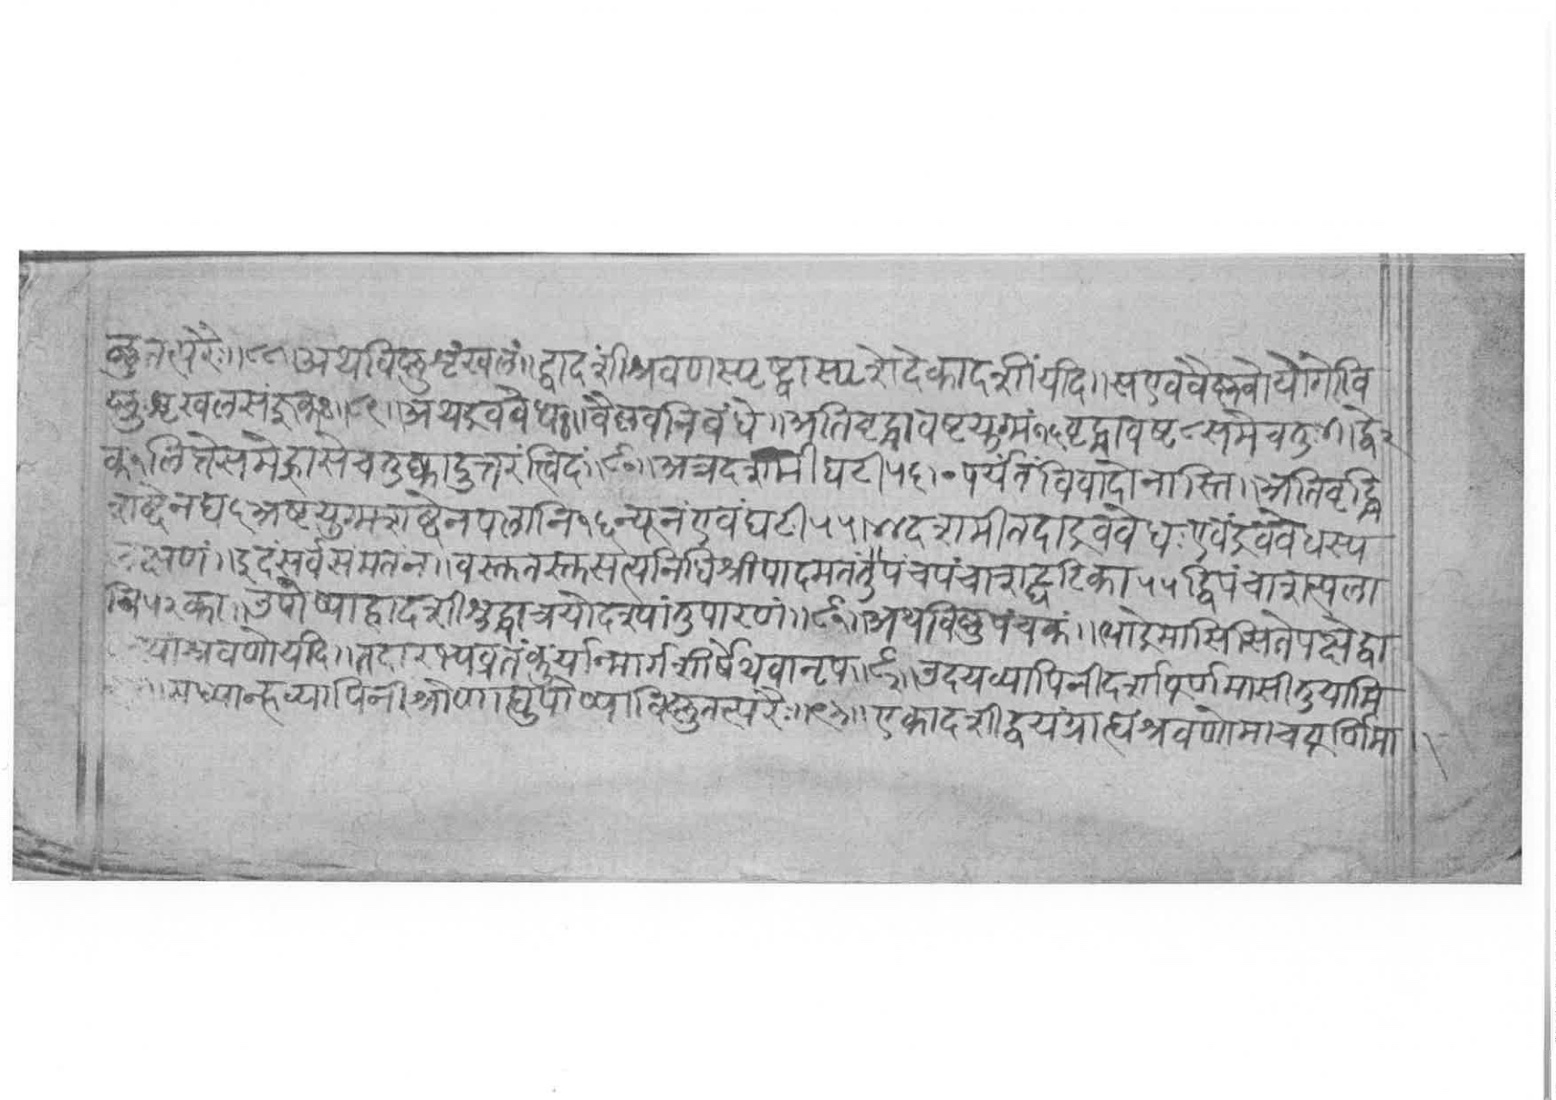 ष्णुतत्परैः॥८८॥अथविष्णुशृंखलं॥द्वादशीश्रवणस्पृष्टास्पृशेदेकादशींयदि॥सएववैष्णवोयोगोवि
ष्णुशृंखलसंज्ञकः॥८९॥अथद्रववेधः॥वैष्णवनिबंधे॥अतिवृद्धावष्टयुग्मं१६वृद्धावष्ट८समेचतुः४।द्वे२
लित्तेसमेह्रासेचतुष्कादुत्तरंत्विदं॥९०॥अत्रदशमीघटी५६।०पर्यंतंविवादोनास्ति॥अतिवृद्धि
शब्देनघ६अष्टयुग्मशब्देनपलानि१६न्यूनंएवंघटी५५।४४दशमीतदाद्रववेधःएवंद्रववेधस्य
लक्षणं॥इदंसर्वसंमतंन॥वस्तुतस्तुसत्यनिधिश्रीपादमतंतुपंचपंचाशद्घटिका५५द्विपंचाशत्पला
नि५२का॥उपोष्याद्वादशीशुद्धात्रयोदश्यांतुपारणं॥९१॥अथविष्णुपंचकं॥भाद्रेमासिसितेपक्षेद्वा
श्यांश्रवणोयदि॥तदारभ्यव्रतंकुर्यान्मार्गशीर्षेथवानृप॥९२॥उदयव्यापिनीदर्शापूर्णमासीतुयामि
मध्यान्हव्यापिनीश्रोणाह्युपोष्याविष्णुतत्परैः॥९३॥एकादशीद्वयंग्राह्यंश्रवणोमाचपूर्णिमा